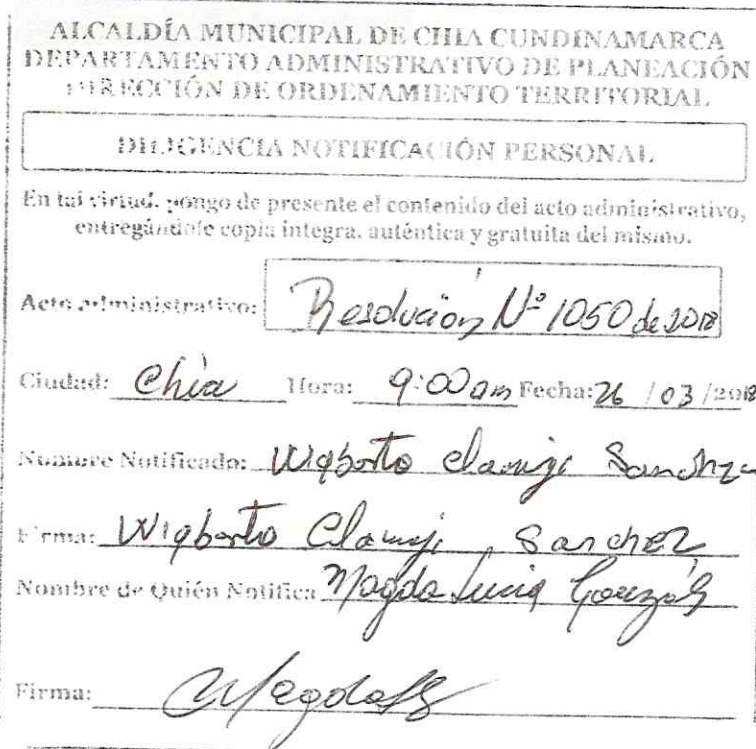 ALCALDÍA MUNICIPAL DE CHIA CUNDINAMARCA
DEPARTAMENTO ADMINISTRATIVO DE PLANEACIÓN
DIRECCIÓN DE ORDENAMIENTO TERRITORIAL
DILIGENCIA NOTIFICACIÓN PERSONAL
En tal virtud, pongo de presente el contenido del acto administrativo,
entregándole copia integra, auténtica y gratuita del mismo.
Acto administrativo: Resolución Nº 1050 de 2018
Ciudad: Chia Hora: 9:00 am Fecha: 26 / 03 / 2018
Nombre Notificado: Wigberto Sanchez
Firma: Wigberto Sanchez
Nombre de Quién Notifica Magda Lucia
Firma: